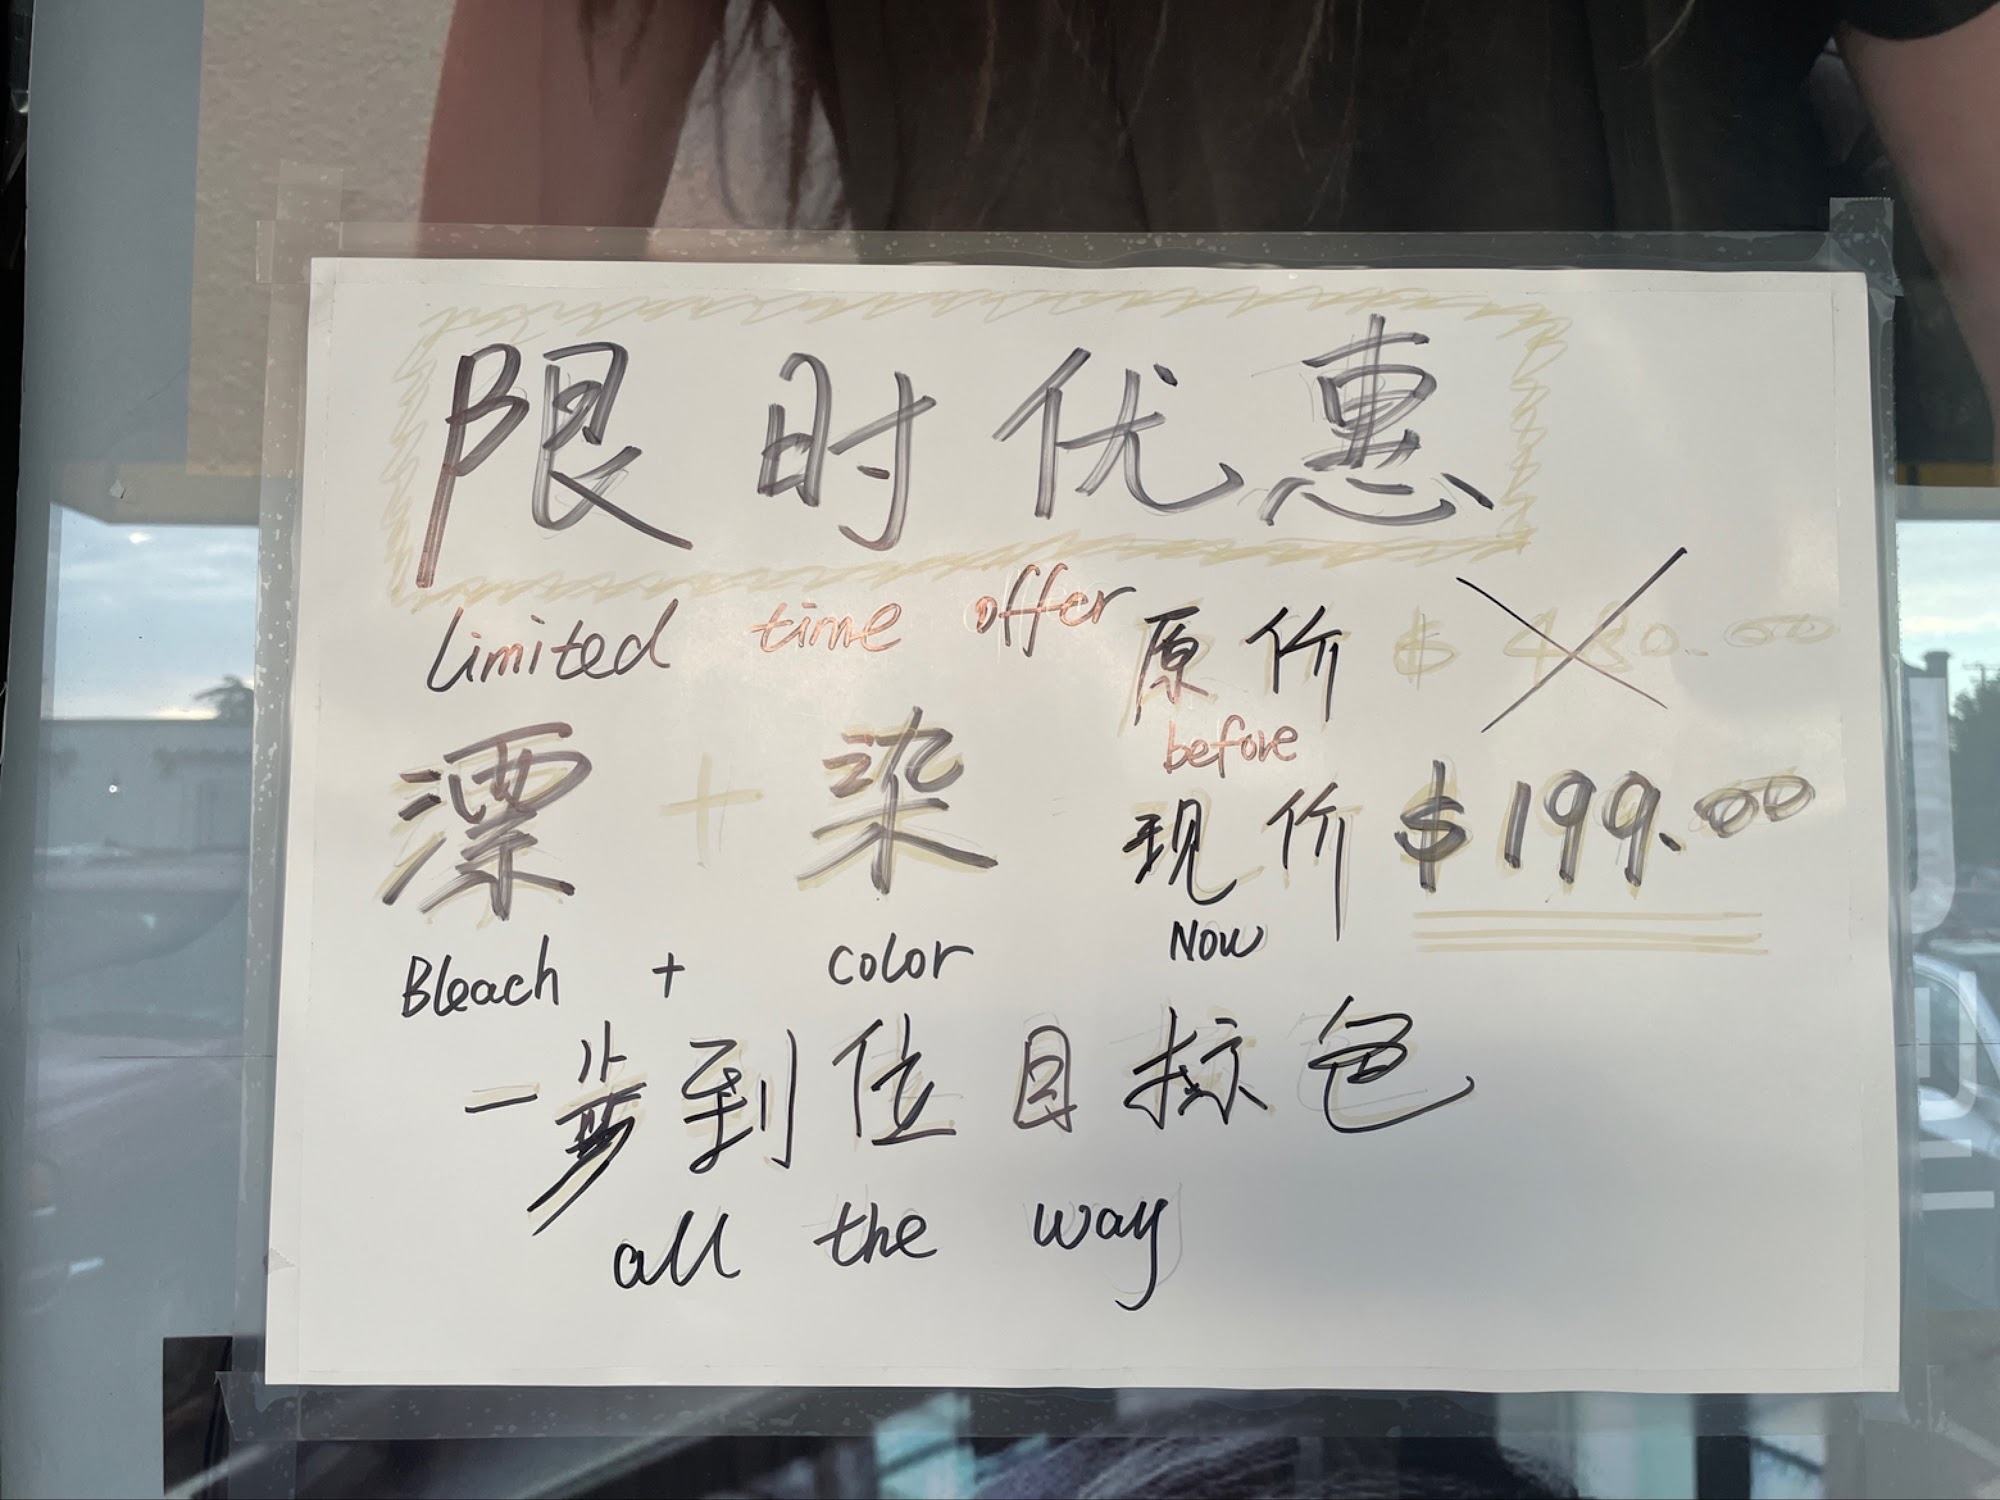 限时优惠
limited time offer
原价 $ 480.00
before
漂 + 染
现价 $199.00
Bleach + color
Now
一步到位目标色
all the way